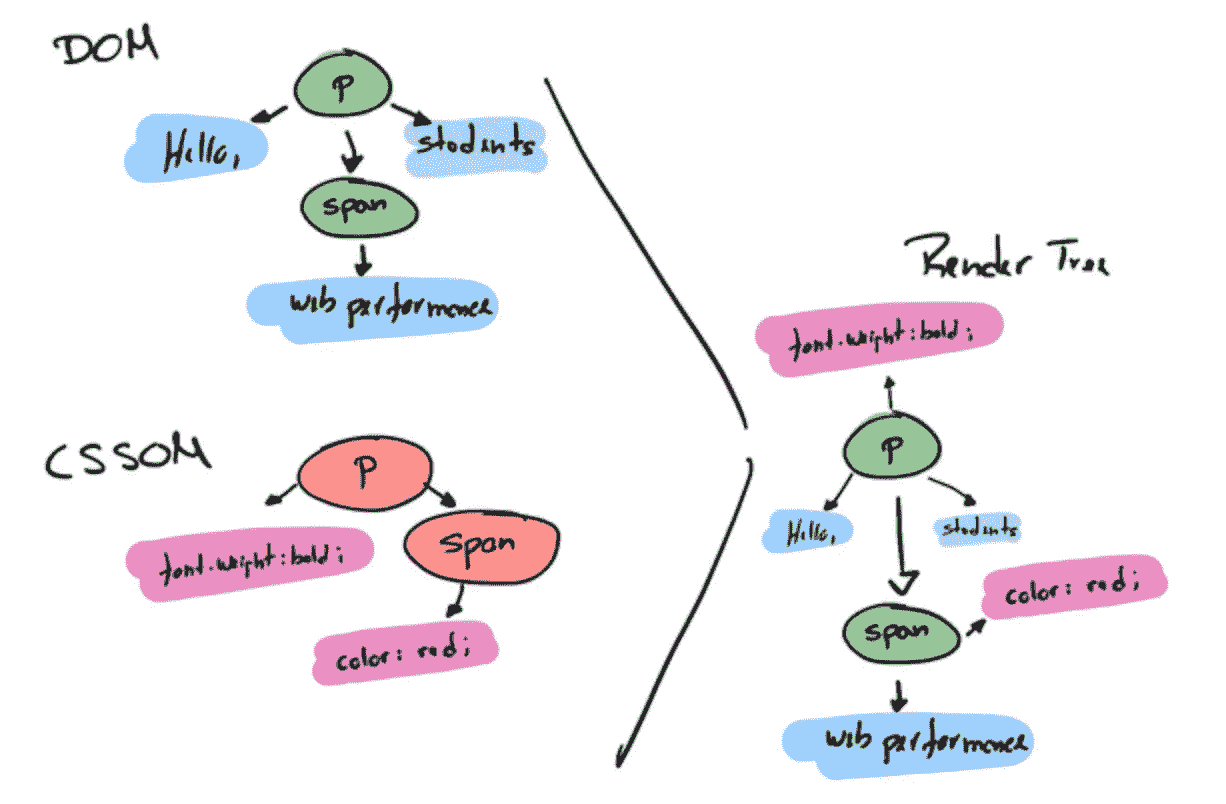 DOM
P
Hello,
students
span
web performance
CSSOM
P
font-weight:bold;
span
color: red;
Render Tree
font-weight:bold;
P
Hello,
students
color: red;
span
web performance